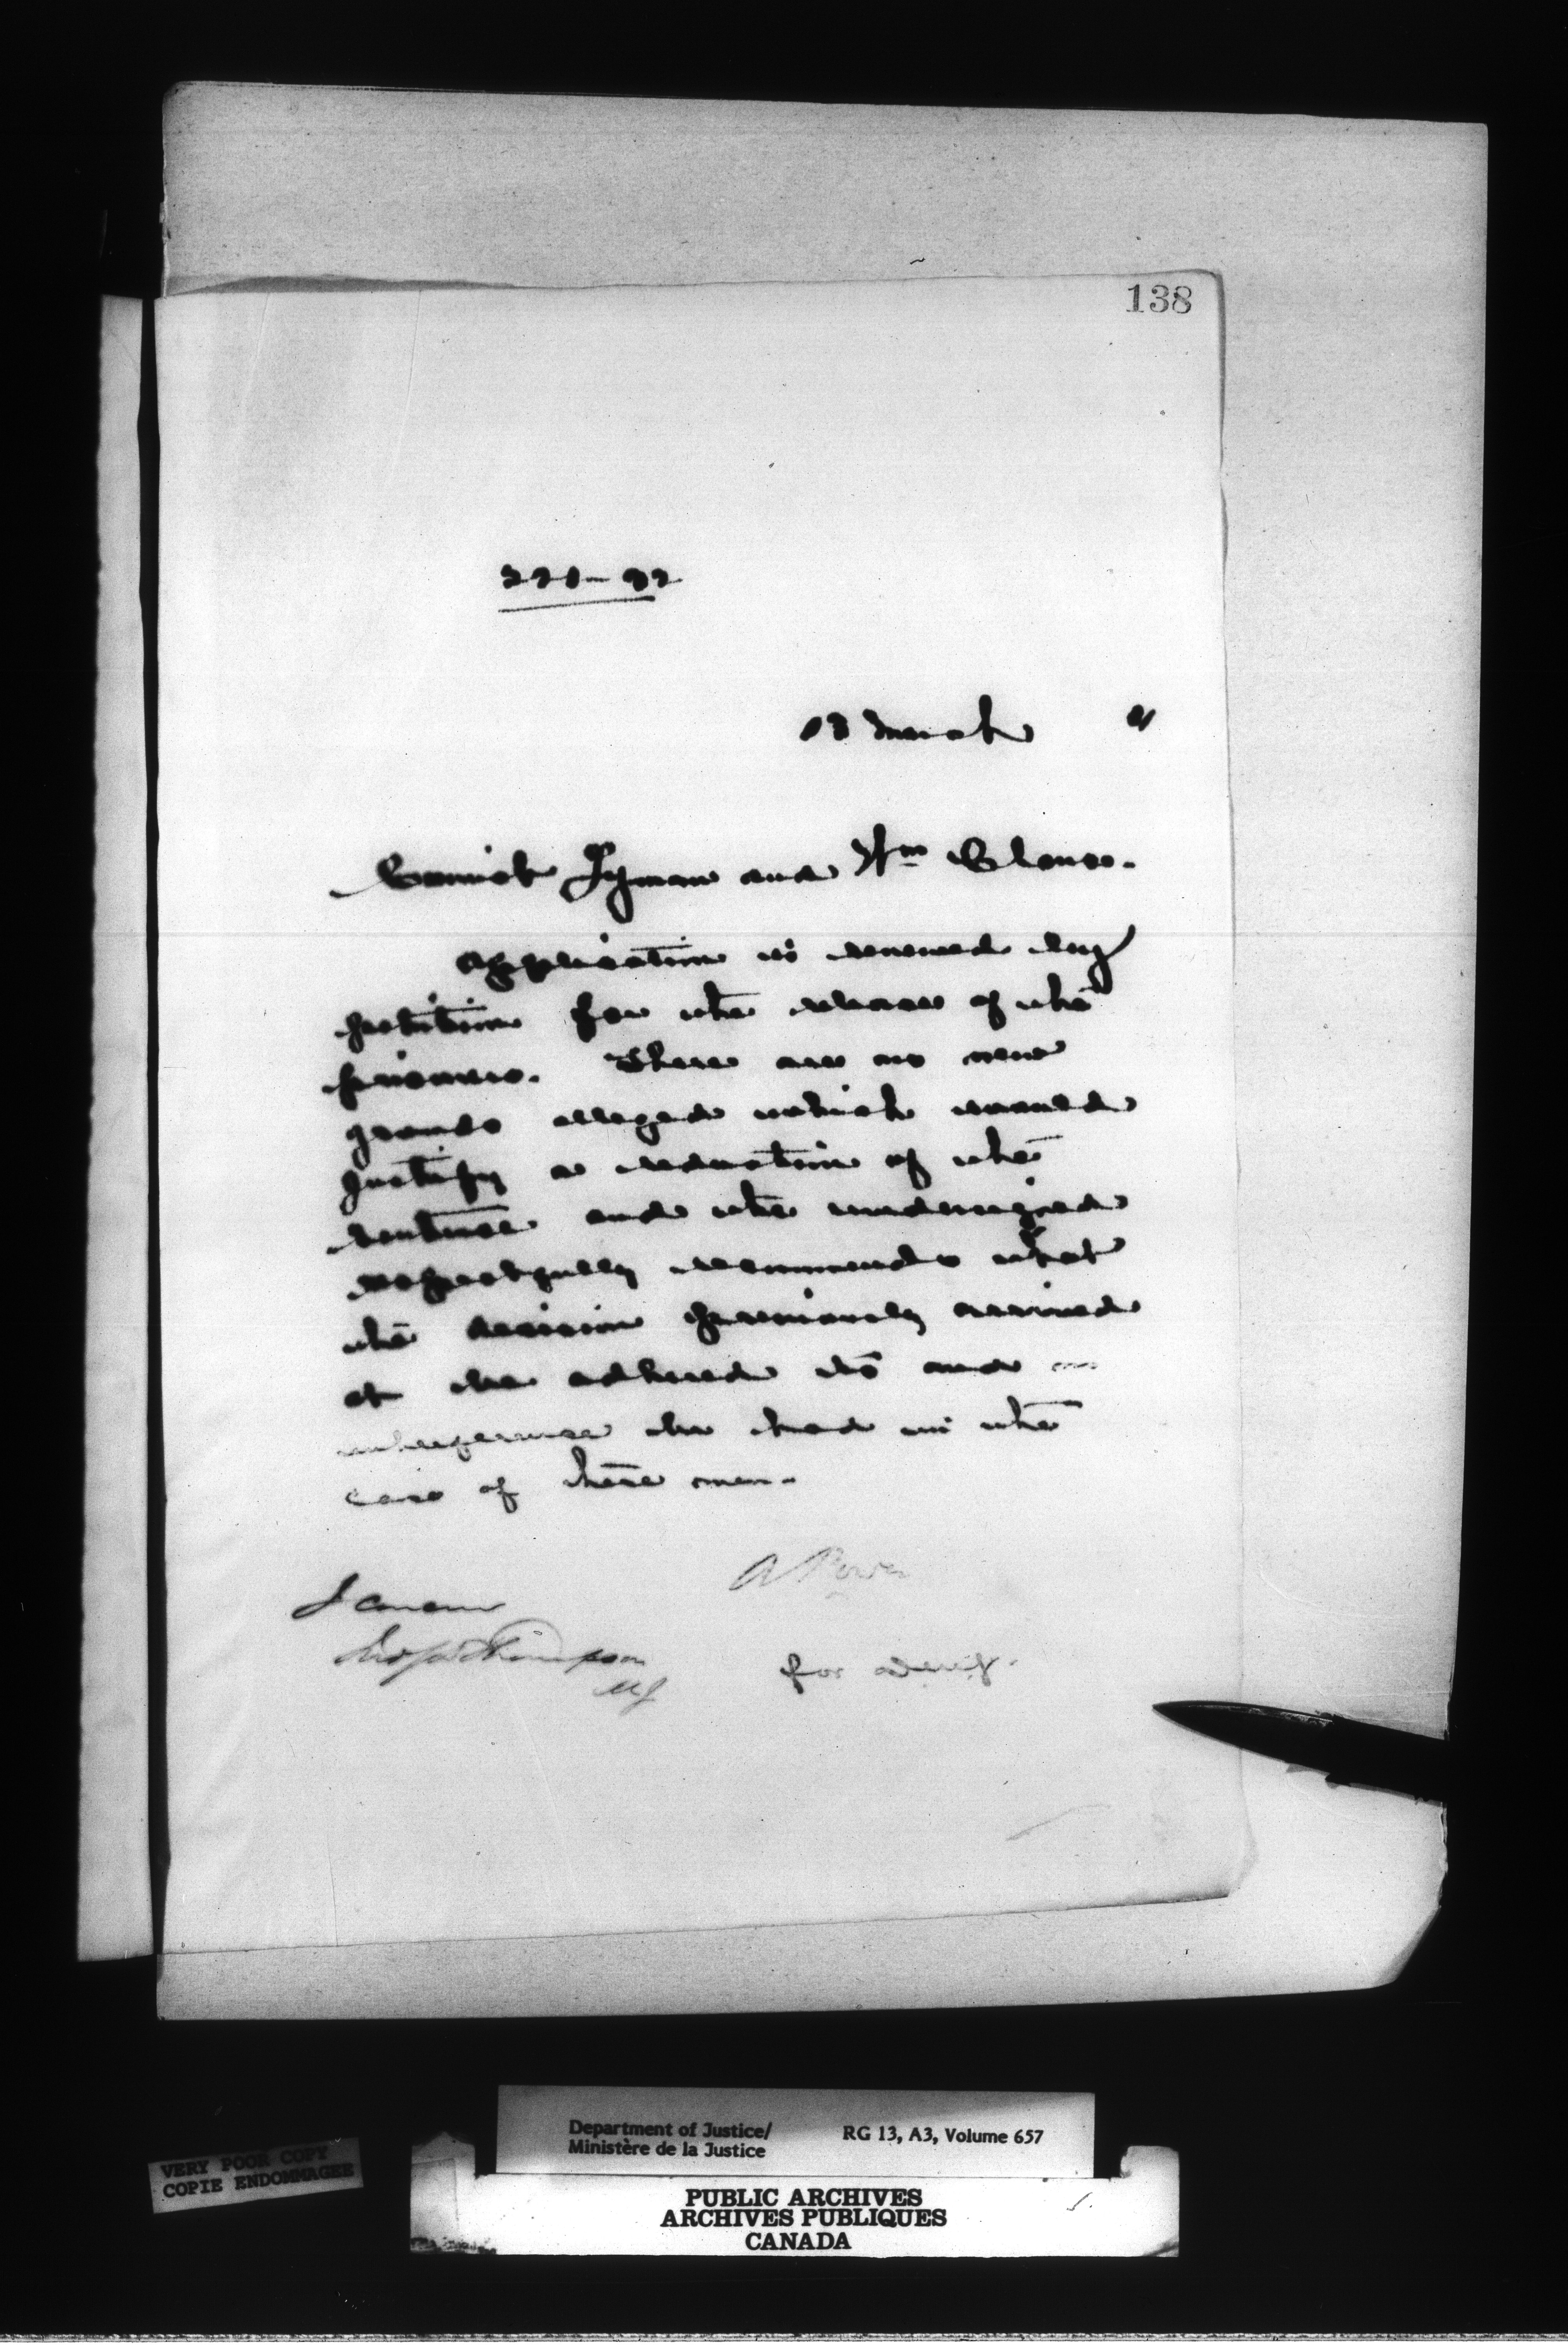 138
13 March 91
Lyman and Wm
Application is renewed by
petition for the release of the
prisoners. There are no new
grounds alleged which would
justify a reduction of the
sentence and the undersigned
respectfully recommends that
the decision previously arrived
at be adhered to and no
interference be had in the
case of these men.
A Power
I concur
Jno S D Thompson
MJ
for
Department of Justice/
Ministère de la Justice
RG 13, A3, Volume 657
VERY POOR COPY
COPIE ENDOMMAGEE
PUBLIC ARCHIVES
ARCHIVES PUBLIQUES
CANADA